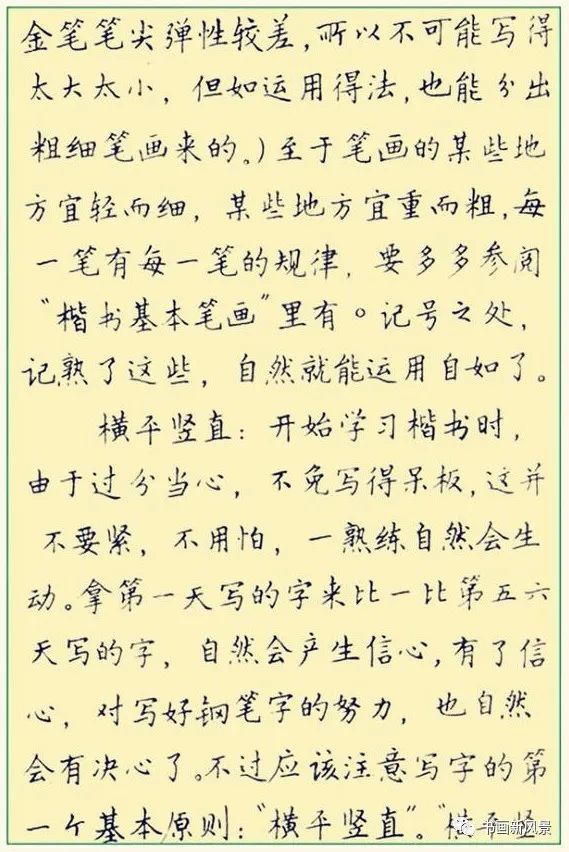 金笔笔尖弹性较差，所以不可能写得
太大太小，但如运用得法，也能分出
粗细笔画来的。）至于笔画的某些地
方宜轻而细，某些地方宜重而粗，每
一笔有每一笔的规律，要多多参阅
“楷书基本笔画”里有。记号之处，
记熟了这些，自然就能运用自如了。
横平竖直：开始学习楷书时，
由于过分当心，不免写得呆板，这并
不要紧，不用怕，一熟练自然会生
动。拿第一天写的字来比一比第五六
天写的字，自然会产生信心，有了信
心，对写好钢笔字的努力，也自然
会有决心了。不过应该注意写字的第
一个基本原则：“横平竖直”。“横平竖
书画新风景